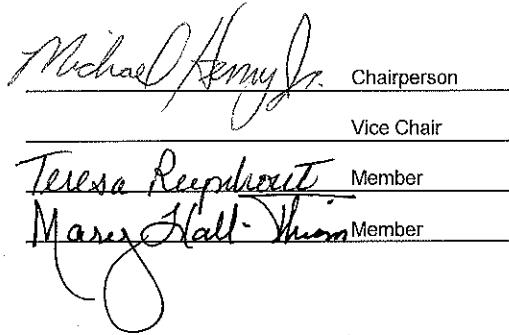 Michael Henry Jr. Chairperson
Vice Chair
Teresa Member
Mary Hall-Thiam Member